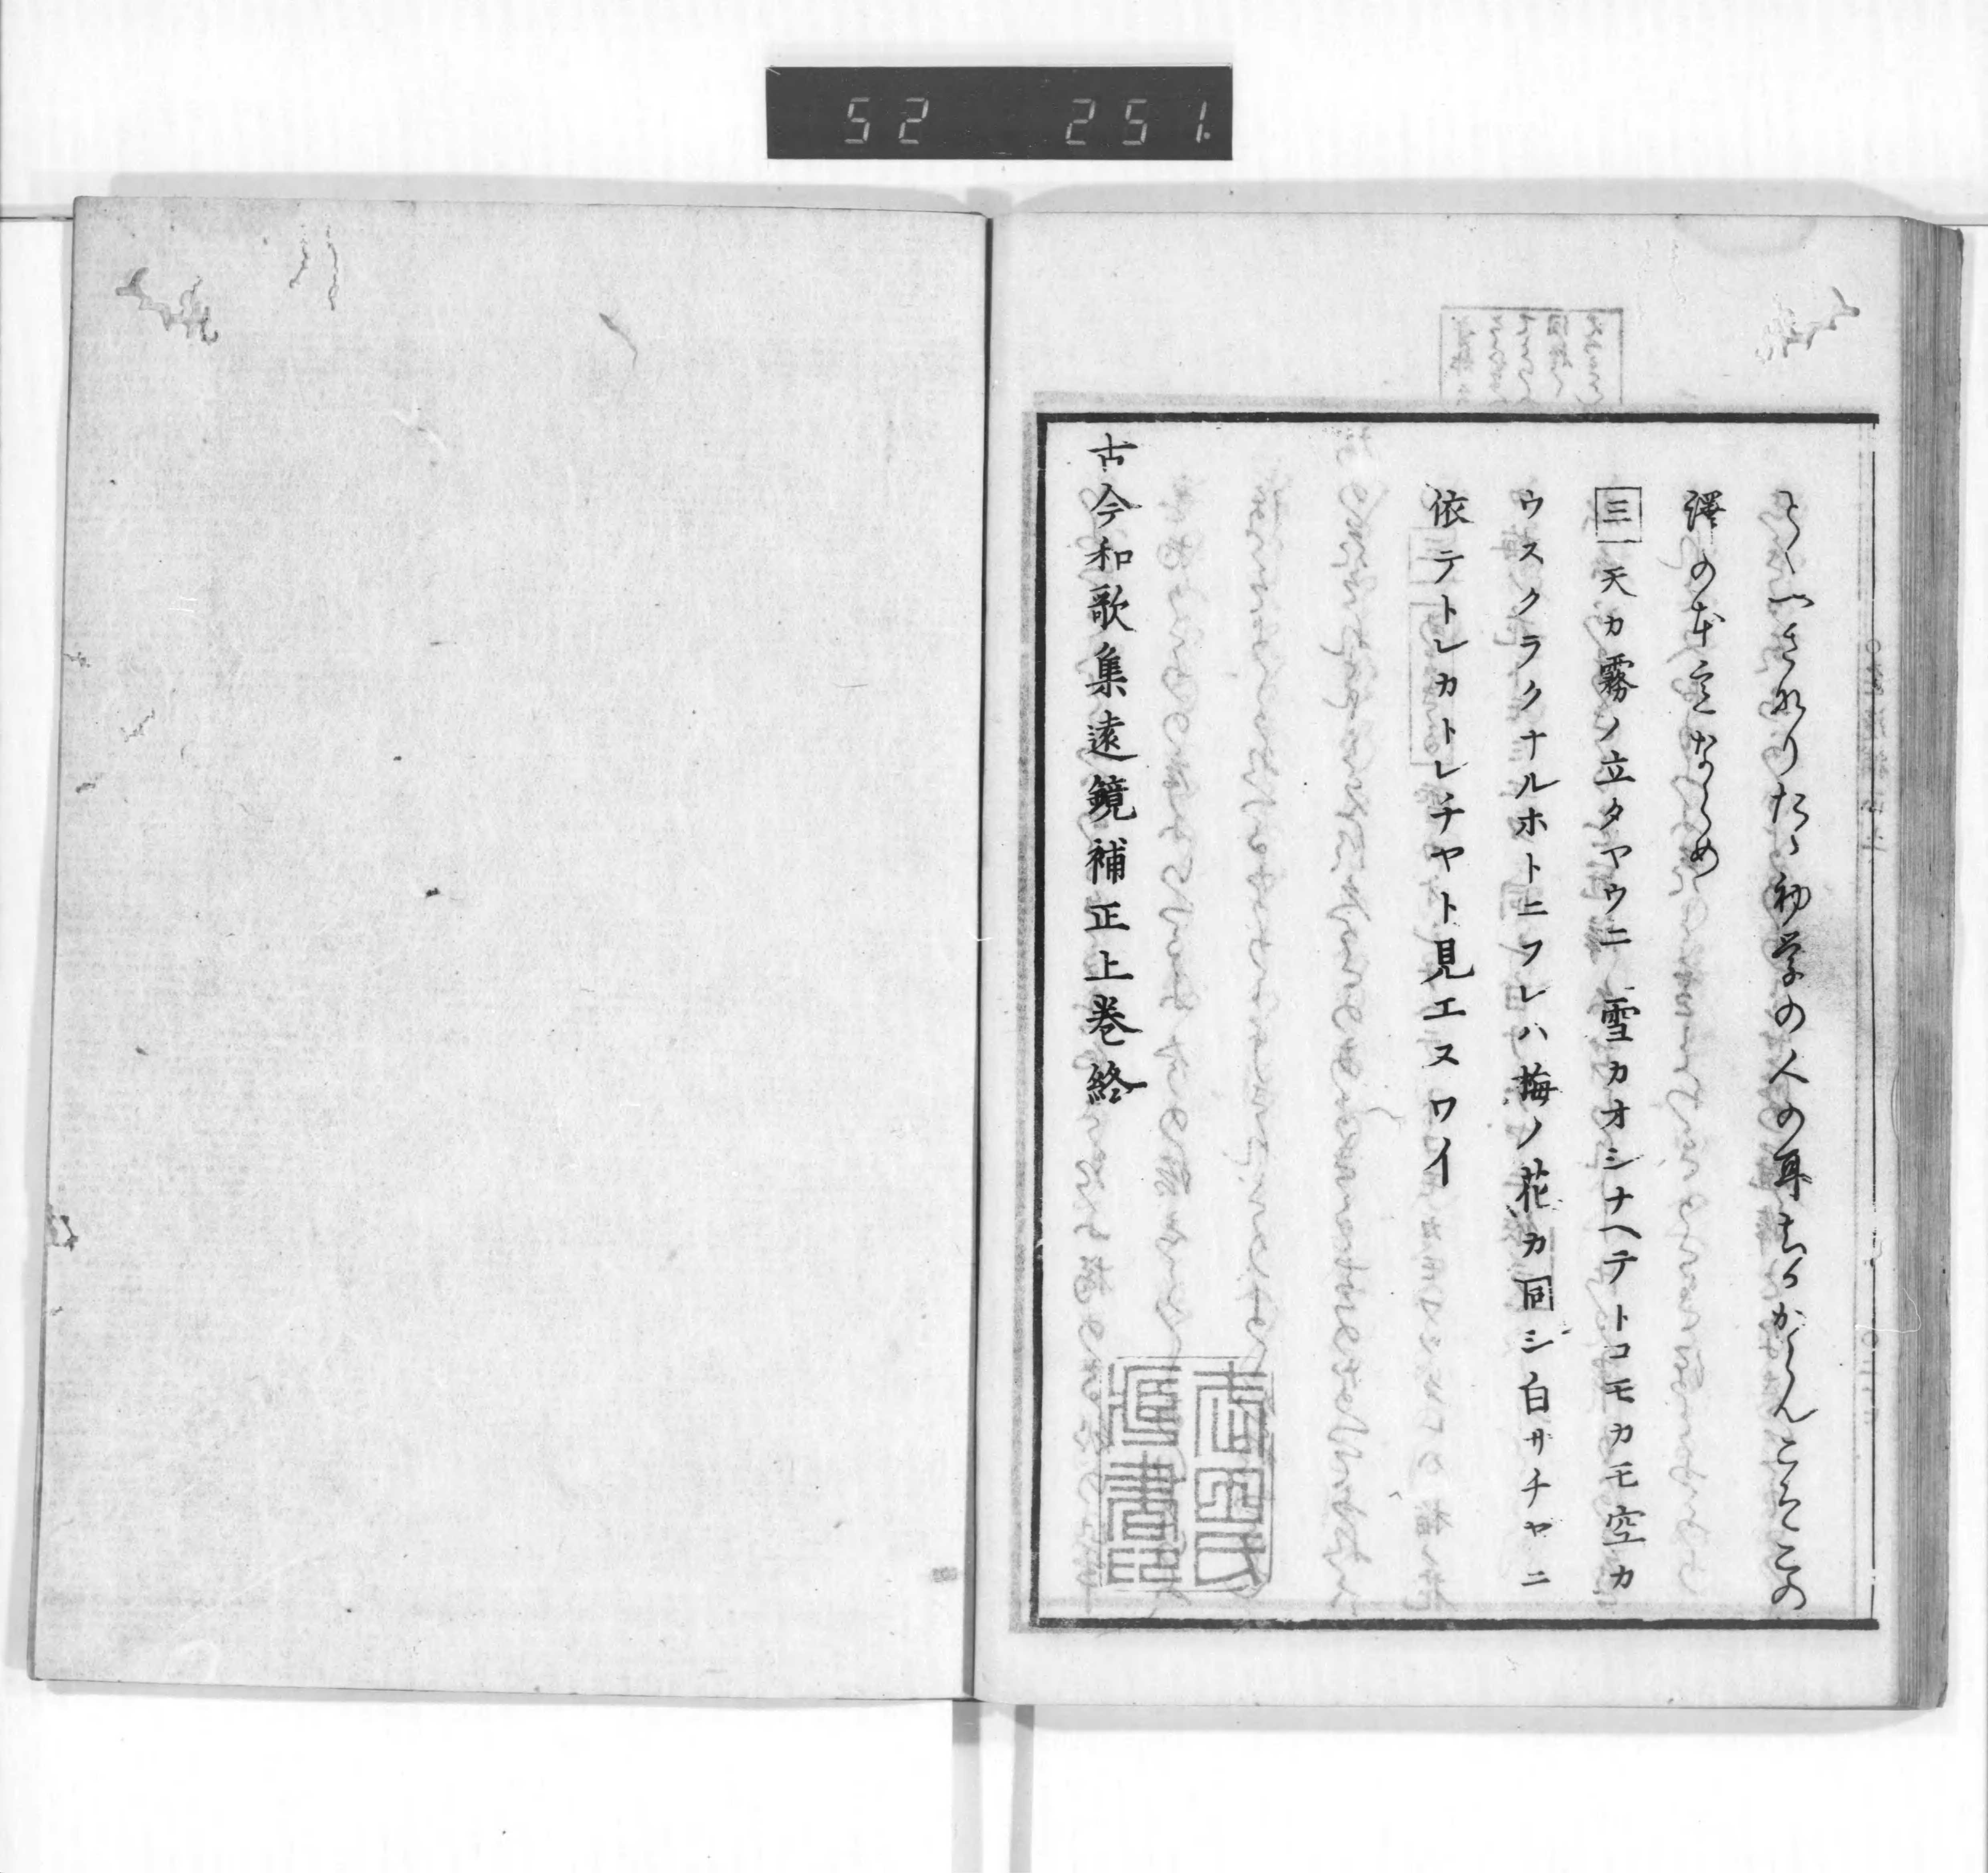 52 251.
きなりたゝ初学の人の耳ちかからんこそこの
譯のなめ
三 天カ霧ノ立タヤウニ 雪カオシナヘテトコモカモ空カ
ウスクラクナルホトニフレハ梅ノ花カ同シ白サチヤニ
依テトレカトレチヤト見エヌワイ
古今和歌集遠鏡補正上巻終